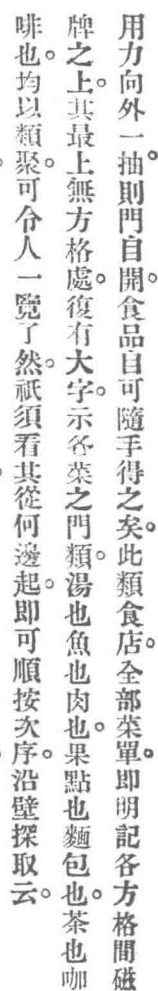 用力向外一抽則門自開。食品自可隨手得之矣。此類食店。全部菜單。即明記各方格間磁
牌之上。其最上無方格處。復有大字示各菜之門類。湯也魚也肉也。果點也麵包也。茶也咖
啡也。均以類聚。可令人一覽了然。祇須看其從何邊起。即可順按次序。沿壁探取云。